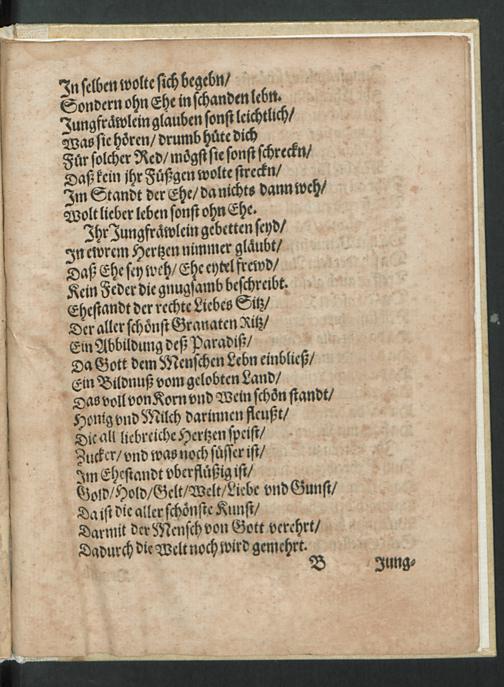 In selben wolte sich begebn/
Sondern ohn Ehe in schanden lebn.
Jungfräwlein glauben sonst leichtlich/
Was sie hören/ drumb hüte dich
Für solcher Red/ mögst sie sonst schreckn/
Daß kein ihr Füßgen wolte streckn/
Im Standt der Ehe/ da nichts dann weh/
Wolt lieber leben sonst ohn Ehe.
Ihr Jungfräwlein gebetten seyd/
In ewrem Hertzen nimmer gläubt/
Daß Ehe sey weh/ Ehe eytel frewd/
Kein Feder die gnugsamb beschreibt.
Ehestandt der rechte Liebes Sitz/
Der aller schönst Granaten Ritz/
Ein Abbildung deß Paradiß/
Da Gott dem Menschen Lebn einbließ/
Ein Bildnuß vom gelobten Land/
Das voll von Korn vnd Wein schön standt/
Honig vnd Milch darinnen fleußt/
Die all liebreiche Hertzen speist/
Zucker/ vnd was noch süsser ist/
Im Ehestandt vberflüßig ist/
Gold/ Hold/ Gelt/ Welt/ Liebe vnd Gunst/
Da ist die aller schönste Kunst/
Darmit der Mensch von Gott verehrt/
Dadurch die Welt noch wird gemehrt.
B Jung-